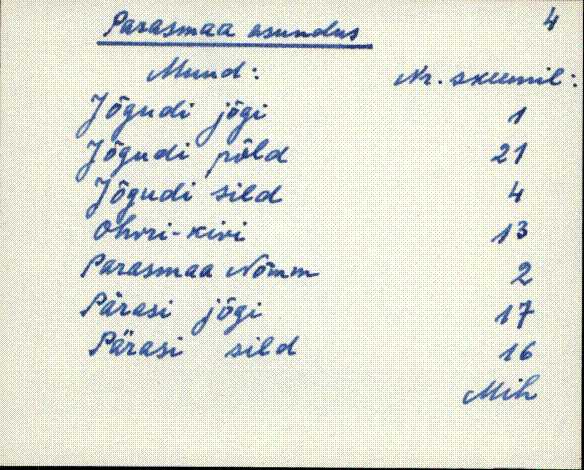 Parasmaa asundus 4
Muud: Nr. skeemil:
Jõgudi jõgi 1
Jõgudi põld 21
Jõgudi sild 4
Ohvri-kivi 13
Parasmaa Nõmm 2
Pärasi jõgi 17
Pärasi sild 16
Mih